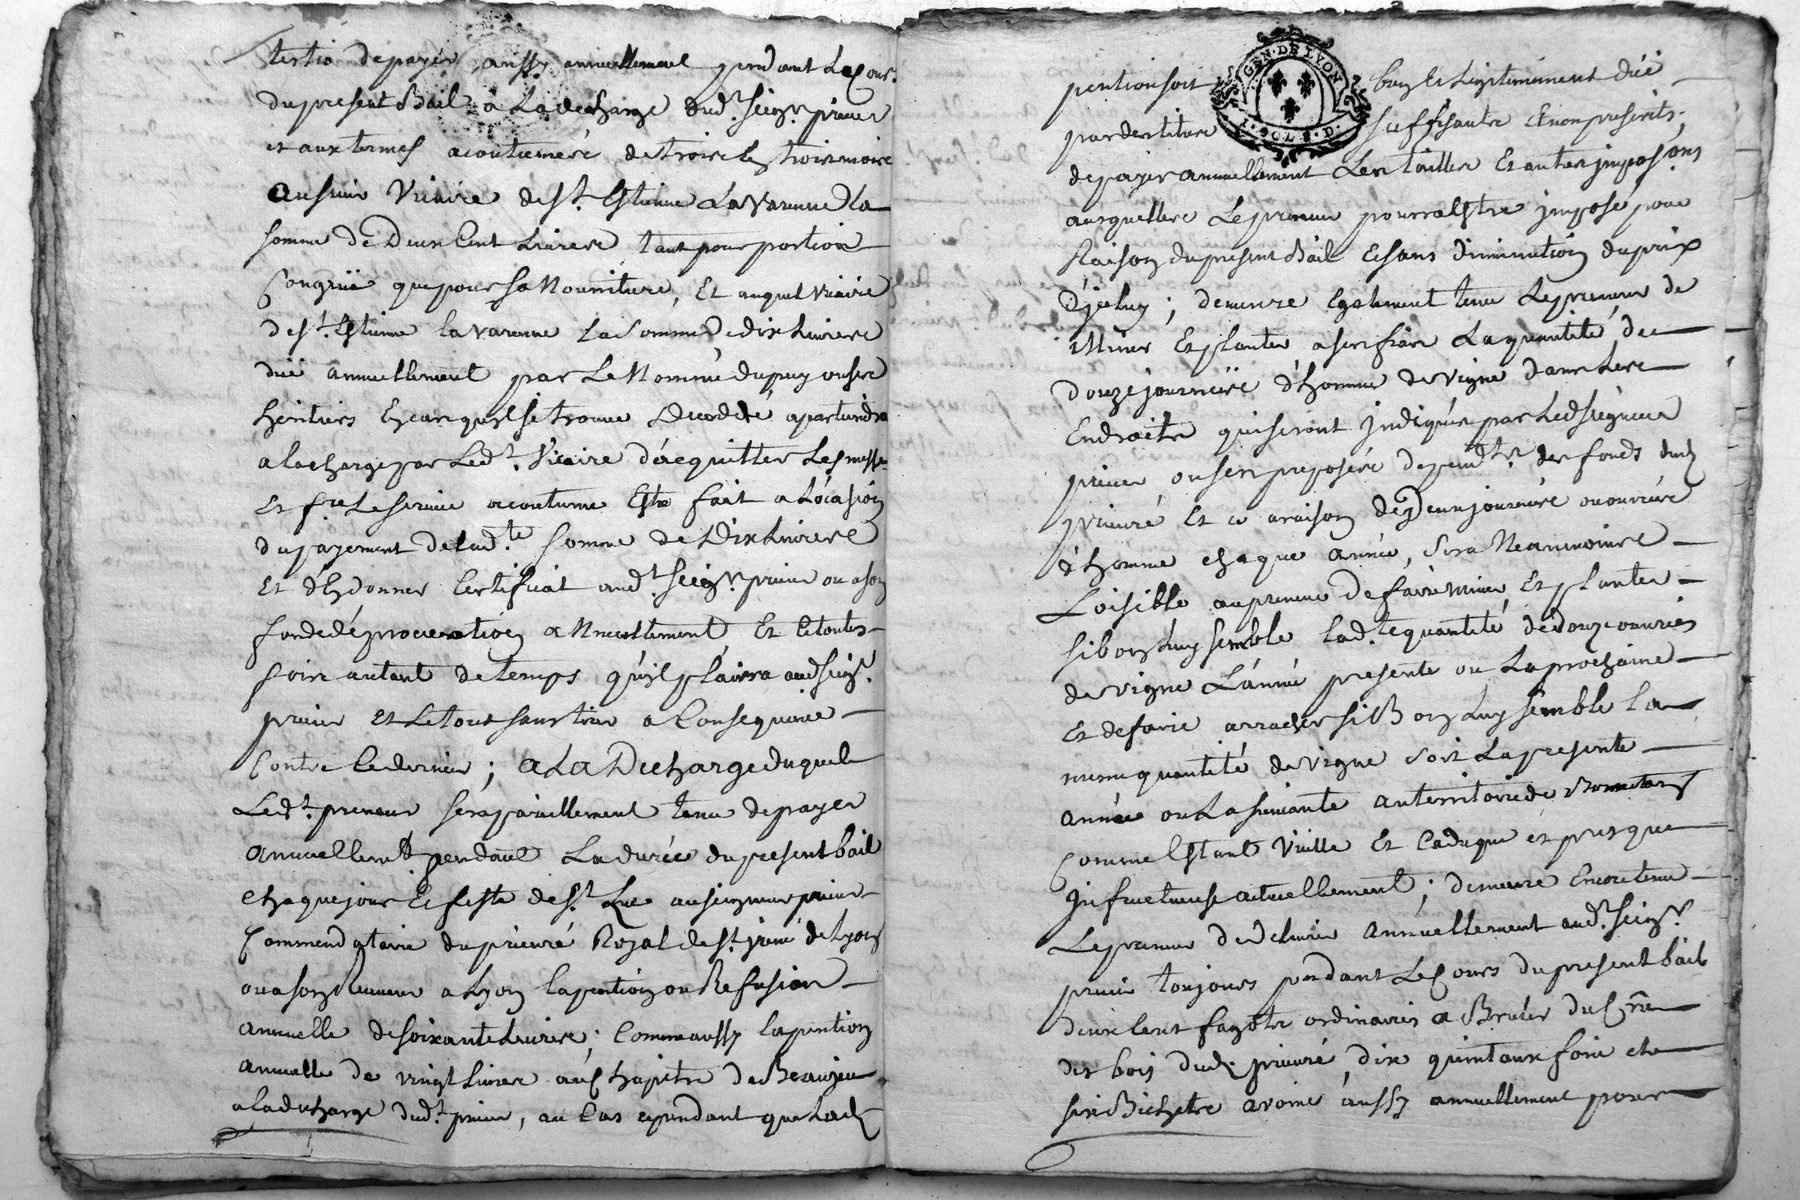 tertio de payer aussy annuellement pendant Le Cours
du present Bail a La decharge dud.t Seig.r prieur
et aux termes acoutumés de trois en trois mois
au sieur Vicaire de S.t Estienne La Varenne La
somme de Deux Cent Livres tant pour portion
Congruë que pour sa Nourriture, Et auquel Vicaire
de S.t Estienne la varenne La Somme de dix Livres
düe annuellement par Le Nommé dupuy ou ses
heritiers En cas qu'il se trouve decedé apartiendra
a la charge par Led.t Vicaire d'acquitter Les messes
Et f.re Le service acoutumé Estre fait a L'ocasion
du payement de lad.te Somme de Dix Livres
Et d'En donner Certificat aud.t Seig.r prieur ou a son
fondé de procuration annuellement Et ce toutes
fois autant de temps qu'il plaira aud Seig.r
prieur Et Le tout sans tirer a Consequence
Contre Ce dernier ; A LA Decharge duquel
Led.t preneur sera pareillement tenu de payer
annuellem.t pendant La durée du present bail
chaque jour Et feste de S.t Luc au seigneur prieur
Commendataire du prieuré Royal de S.t jrené de Lyon
ou a son Receveur a Lyon la pention ou Refusion
annuelle de soixante Livres ; Comme aussy la pention
annuelle de vingt Livres au Chapitre de Beaujeu
a la decharge dud.t prieur, au Cas cependant que Lad.
pention soit
GEN. DE LYON
1. SOL 8. D.
bien et Legitimement düe
par des titres
suffisants et non prescrits ;
de payer annuellement Les tailles Et autres impos.ons
auxquelles Le preneur pourra Estre imposé pour
Raison du present Bail Et sans diminution du prix
D'jceluy ; demeure Egalement tenu Le preneur de
Miner Et planter a ses frais La quantité de
douze journées d'homme de Vigne dans Les
Endroits qui seront jndiqués par Led seigneur
prieur ou ses preposés dependts des fonds dud
prieuré Et ce a raison de Deux journées ou ouvrées
d'homme chaque année, Sera Neanmoins
Loisible au preneur De faire miner Et planter
si bon Luy semble lad.te quantité de Douze ouvrées
de vigne L'année presente ou La prochaine
Et de faire arracher si Bon Luy semble la
meme quantité de Vigne soit La presente
année ou La suivante au territoire de
Comme Estant Vieille Et Caduque et presque
jnfructueuse actuellement ; demeure Encore tenu
Le preneur de delivrer Annuellement aud.t Seig.r
prieur toujours pendant Le Cours du present bail
deux Cent fagots ordinaires a Bruler du Crû
des bois dud. prieuré, dix quintaux foin et
six Bichets avoine aussy annuellement pour